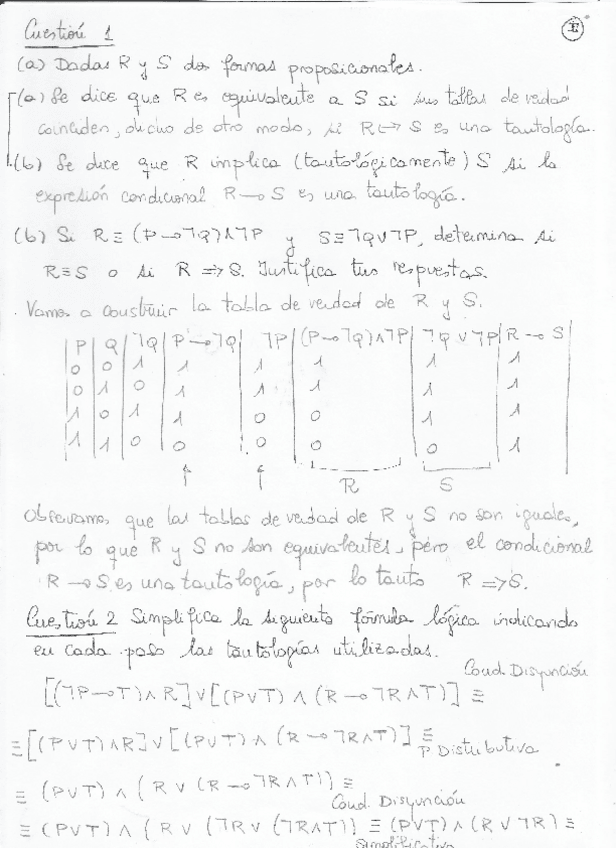 Cuestión 1
(a) Dadas R y S dos formas proposicionales.
(a) Se dice que R es equivalente a S si sus tablas de verdad
coinciden, dicho de otro modo, si R↔S es una tautología.
(b) Se dice que R implica (tautológicamente) S si la
expresión condicional R→S es una tautología.
(b) Si R≡(P→¬Q)∧¬P y S≡¬Q∨¬P, determina si
R≡S o si R⇒S. Justifica tus respuestas.
Vamos a construir la tabla de verdad de R y S.
P Q ¬Q P→¬Q ¬P (P→¬Q)∧¬P ¬Q∨¬P R→S
0 0 1 1 1 1 1 1
0 1 0 1 1 1 1 1
1 0 1 1 0 0 1 1
1 1 0 0 0 0 0 1
↑ ↑ R S
Observamos que las tablas de verdad de R y S no son iguales,
por lo que R y S no son equivalentes, pero el condicional
R→S es una tautología, por lo tanto R⇒S.
Cuestión 2 Simplifica la siguiente fórmula lógica indicando
en cada paso las tautologías utilizadas.
Cond. Disyunción
[(¬P→T)∧R]∨[(P∨T)∧(R→¬R∧T)] ≡
≡[(P∨T)∧R]∨[(P∨T)∧(R→¬R∧T)] ≡
P Distributiva
≡ (P∨T)∧(R∨(R→¬R∧T)) ≡
Cond. Disyunción
≡ (P∨T)∧(R∨(¬R∨(¬R∧T)) ≡ (P∨T)∧(R∨¬R) ≡
Simplificativa